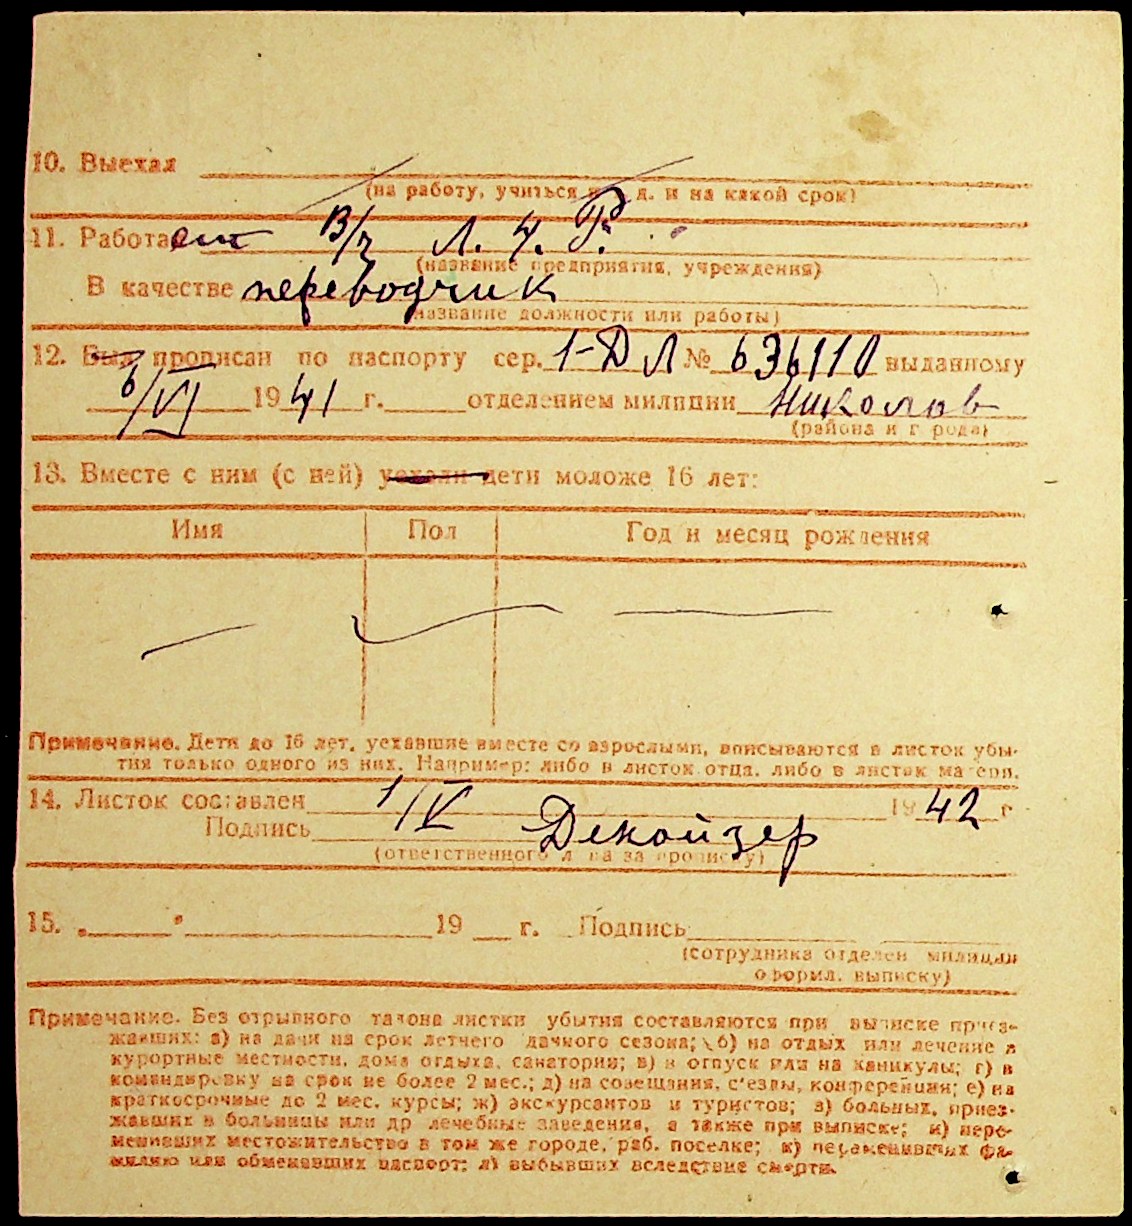 10. Выехал
(на работу, учиться и т. д. и на какой срок)
11. Работает В/ч Л. Ч. Р.
(название предприятия, учреждения)
В качестве переводчик
(название должности или работы)
12. Был прописан по паспорту сер. 1-ДЛ № 636110 выданному
6/VI 1941 г. отделением милиции Николаев
(района и города)
13. Вместе с ним (с ней) уехали дети моложе 16 лет:
Имя Пол Год и месяц рождения
Примечание. Дети до 16 лет, уехавшие вместе со взрослыми, вписываются в листок убы-
тия только одного из них. Например: либо в листок отца, либо в листок матери.
14. Листок составлен 1/V 1942 г
Подпись
(ответственного лица за прописку)
15. „ “ 19 г. Подпись
(сотрудника отделен милиции
оформл. выписку)
Примечание. Без отрывного талона листки убытия составляются при выписке приез-
жавших: а) на дачи на срок летнего дачного сезона; б) на отдых или лечение в
курортные местности, дома отдыха, санатории; в) в отпуск или на каникулы; г) в
командировку на срок не более 2 мес.; д) на совещания, с'езды, конференции; е) на
краткосрочные до 2 мес. курсы; ж) экскурсантов и туристов; з) больных, приез-
жавших в больницы или др лечебные заведения, а также при выписке; и) пере-
менивших местожительство в том же городе, раб. поселке; к) переменивших фа-
милию или обменявших паспорт; л) выбывших вследствие смерти.